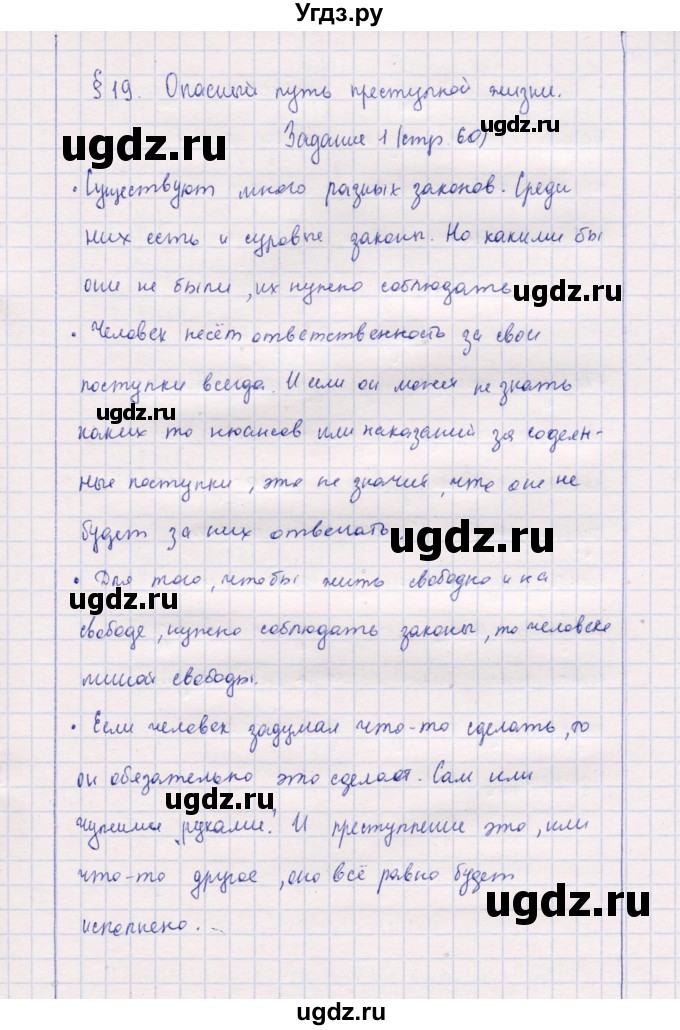 Угдз.ру
§ 19. Опасный путь преступной жизни.
ugdz.ru
Задание 1 (стр. 60)
ugdz.ru
• Существуют много разных законов. Среди
них есть и суровые законы. Но какими бы
они не были, их нужно соблюдать
ugdz.ru
• Человек несёт ответственность за свои
поступки всегда. И если он может не знать
ugdz.ru
каких то нюансов или наказаний за содеян-
ные поступки, это не значит, что он не
будет за них отвечать.
ugdz.ru
• Для того, чтобы жить свободно и на
ugdz.ru
свободе, нужно соблюдать законы, то человека
лишат свободы.
• Если человек задумал что-то сделать, то
он обязательно это сделает. Сам или
ugdz.ru
чужими „руками". И преступление это, или
что-то другое, оно всё равно будет
ugdz.ru
исполнено.
ugdz.ru